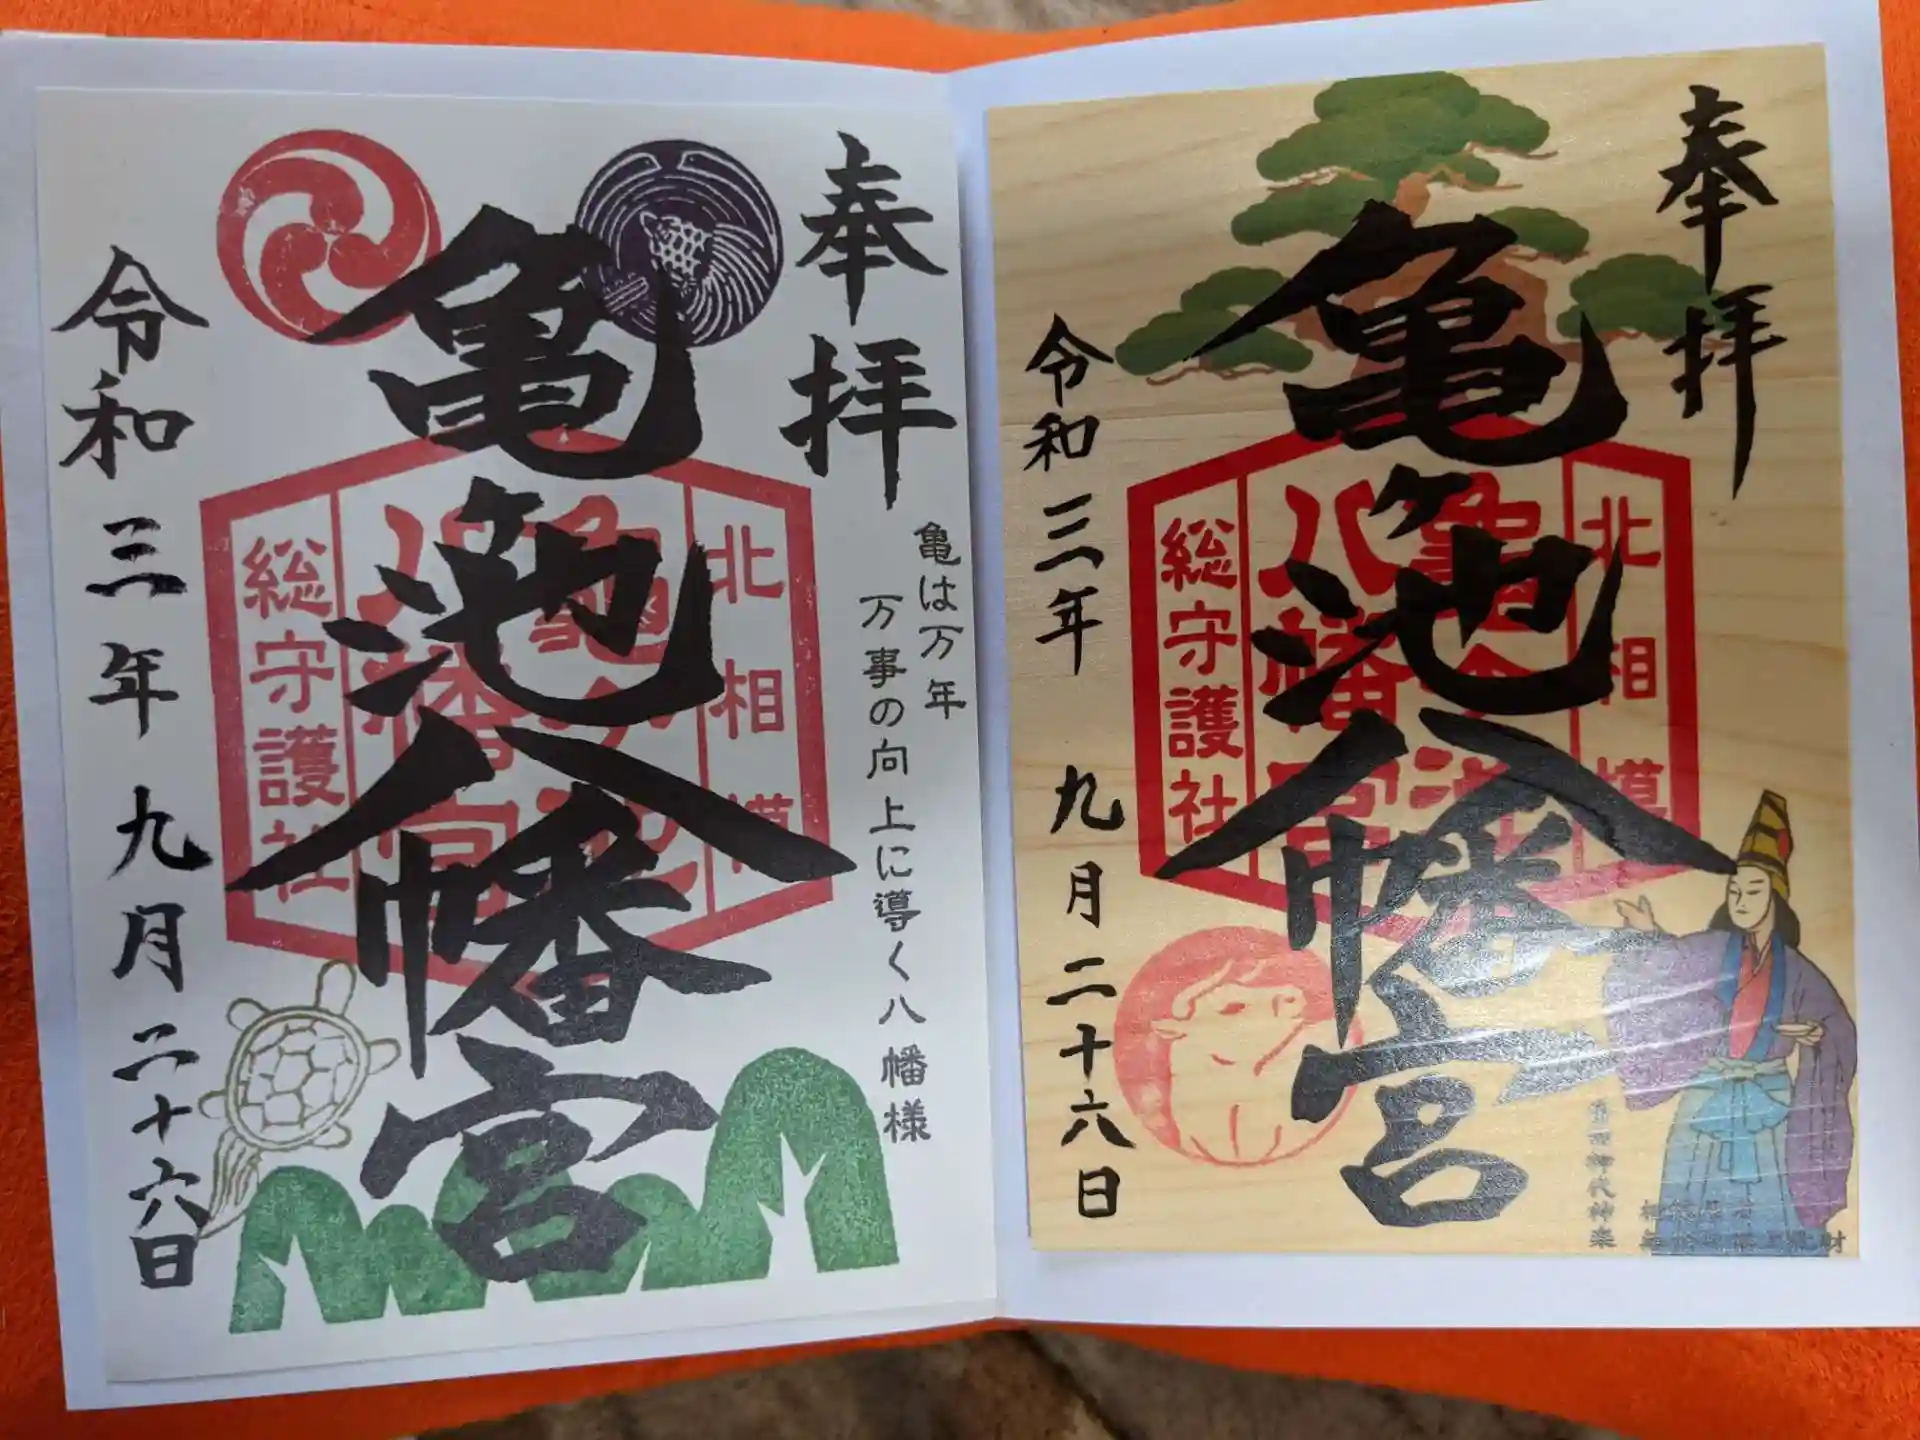 奉拝
亀ヶ池八幡宮
令和三年九月二十六日
北相模
亀ヶ池
八幡宮
総守護社
亀は万年
万事の向上に導く八幡様
奉拝
亀ヶ池八幡宮
令和三年九月二十六日
北相模
亀ヶ池
八幡宮
総守護社
神代神楽